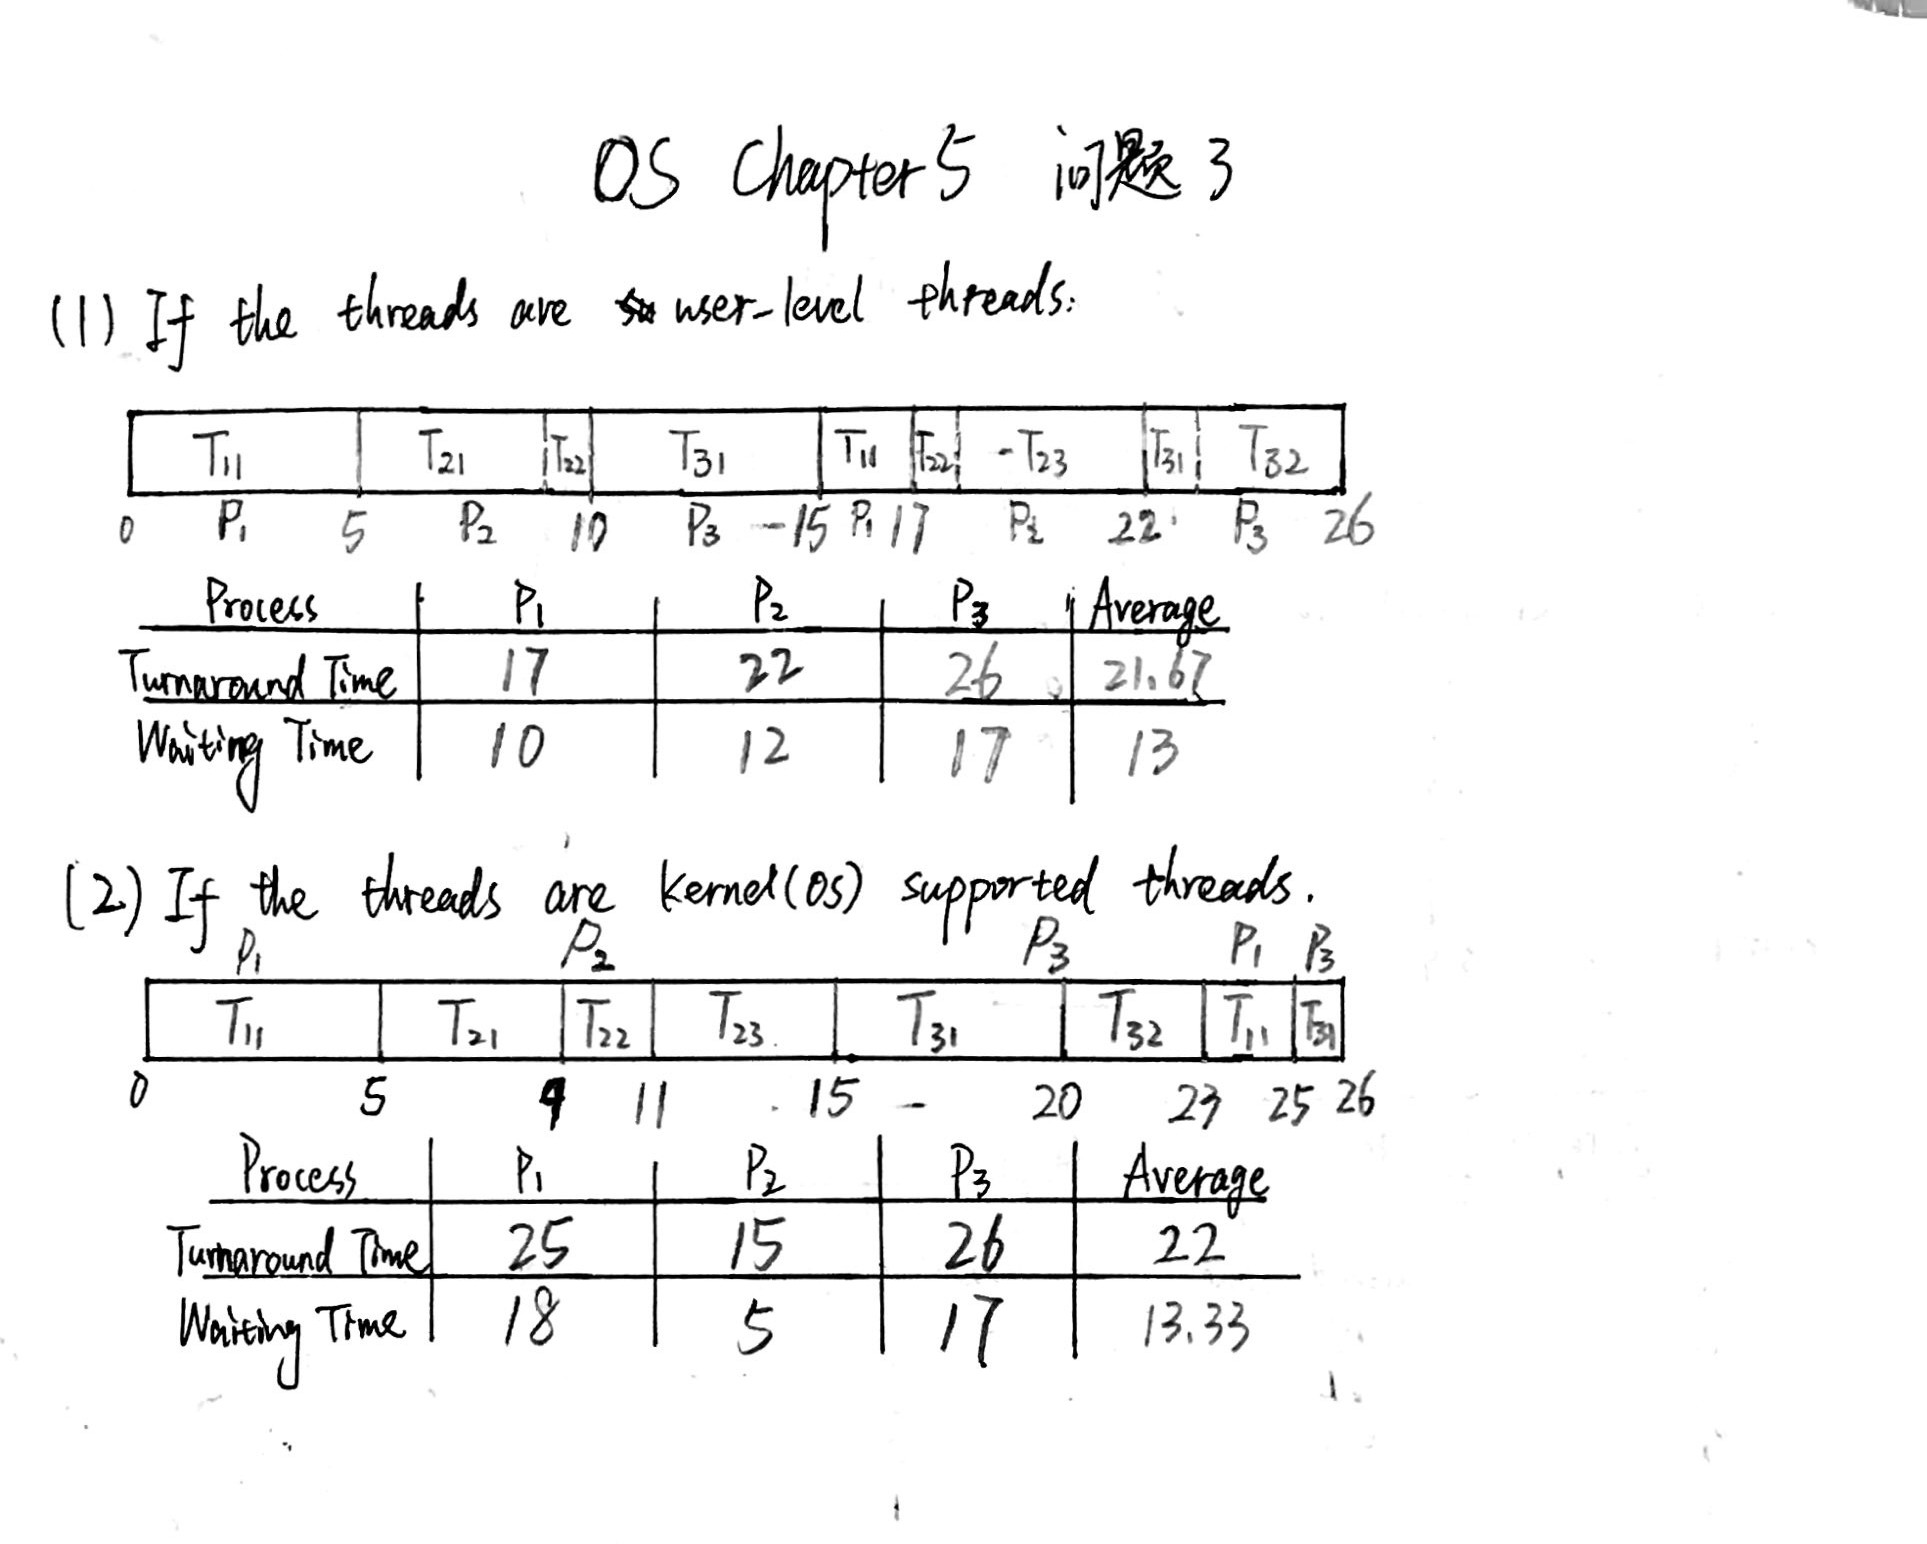 OS Chapter 5 问题 3
(1) If the threads are user-level threads:
T11 T21 T22 T31 T11 T22 T23 T31 T32
0 P1 5 P2 10 P3 15 P1 17 P2 22 P3 26
Process P1 P2 P3 Average
Turnaround Time 17 22 26 21.67
Waiting Time 10 12 17 13
(2) If the threads are kernel(OS) supported threads.
P1 P2 P3 P1 P3
T11 T21 T22 T23 T31 T32 T11 T31
0 5 9 11 15 20 23 25 26
Process P1 P2 P3 Average
Turnaround Time 25 15 26 22
Waiting Time 18 5 17 13.33